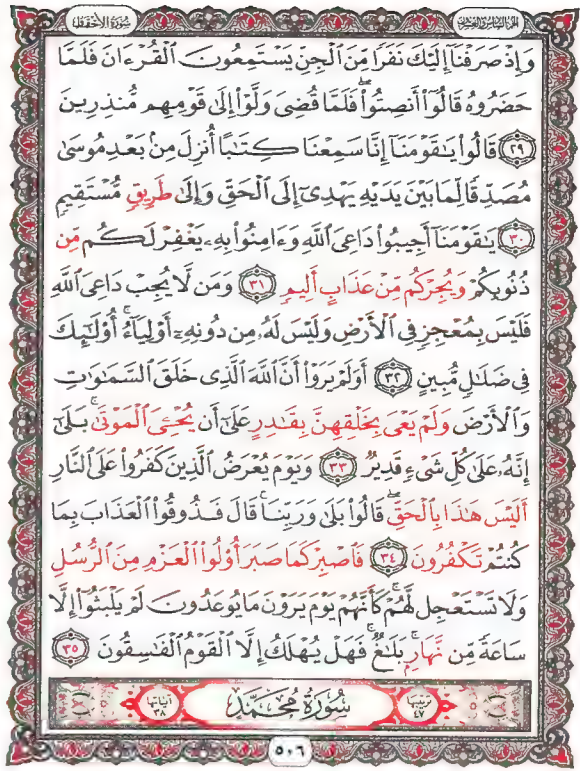 سُورَةُ الأَحْقَافِ
الجزء السادس والعشرون
وَإِذْ صَرَفْنَآ إِلَيْكَ نَفَرًا مِّنَ ٱلْجِنِّ يَسْتَمِعُونَ ٱلْقُرْءَانَ فَلَمَّا
حَضَرُوهُ قَالُوٓا۟ أَنصِتُوا۟ ۖ فَلَمَّا قُضِىَ وَلَّوْا۟ إِلَىٰ قَوْمِهِم مُّنذِرِينَ
﴿٢٩﴾ قَالُوا۟ يَٰقَوْمَنَآ إِنَّا سَمِعْنَا كِتَٰبًا أُنزِلَ مِنۢ بَعْدِ مُوسَىٰ
مُصَدِّقًا لِّمَا بَيْنَ يَدَيْهِ يَهْدِىٓ إِلَى ٱلْحَقِّ وَإِلَىٰ طَرِيقٍ مُّسْتَقِيمٍ
﴿٣٠﴾ يَٰقَوْمَنَآ أَجِيبُوا۟ دَاعِىَ ٱللَّهِ وَءَامِنُوا۟ بِهِۦ يَغْفِرْ لَكُم مِّن
ذُنُوبِكُمْ وَيُجِرْكُم مِّنْ عَذَابٍ أَلِيمٍ ﴿٣١﴾ وَمَن لَّا يُجِبْ دَاعِىَ ٱللَّهِ
فَلَيْسَ بِمُعْجِزٍ فِى ٱلْأَرْضِ وَلَيْسَ لَهُۥ مِن دُونِهِۦٓ أَوْلِيَآءُ ۚ أُو۟لَٰٓئِكَ
فِى ضَلَٰلٍ مُّبِينٍ ﴿٣٢﴾ أَوَلَمْ يَرَوْا۟ أَنَّ ٱللَّهَ ٱلَّذِى خَلَقَ ٱلسَّمَٰوَٰتِ
وَٱلْأَرْضَ وَلَمْ يَعْىَ بِخَلْقِهِنَّ بِقَٰدِرٍ عَلَىٰٓ أَن يُحْۦِىَ ٱلْمَوْتَىٰ ۚ بَلَىٰٓ
إِنَّهُۥ عَلَىٰ كُلِّ شَىْءٍ قَدِيرٌ ﴿٣٣﴾ وَيَوْمَ يُعْرَضُ ٱلَّذِينَ كَفَرُوا۟ عَلَى ٱلنَّارِ
أَلَيْسَ هَٰذَا بِٱلْحَقِّ ۖ قَالُوا۟ بَلَىٰ وَرَبِّنَا ۚ قَالَ فَذُوقُوا۟ ٱلْعَذَابَ بِمَا
كُنتُمْ تَكْفُرُونَ ﴿٣٤﴾ فَٱصْبِرْ كَمَا صَبَرَ أُو۟لُوا۟ ٱلْعَزْمِ مِنَ ٱلرُّسُلِ
وَلَا تَسْتَعْجِل لَّهُمْ ۚ كَأَنَّهُمْ يَوْمَ يَرَوْنَ مَا يُوعَدُونَ لَمْ يَلْبَثُوٓا۟ إِلَّا
سَاعَةً مِّن نَّهَارٍۭ ۚ بَلَٰغٌ ۚ فَهَلْ يُهْلَكُ إِلَّا ٱلْقَوْمُ ٱلْفَٰسِقُونَ ﴿٣٥﴾
ترتيبها ٤٧ سُورَةُ مُحَمَّدٍ آياتها ٣٨
٥٠٦